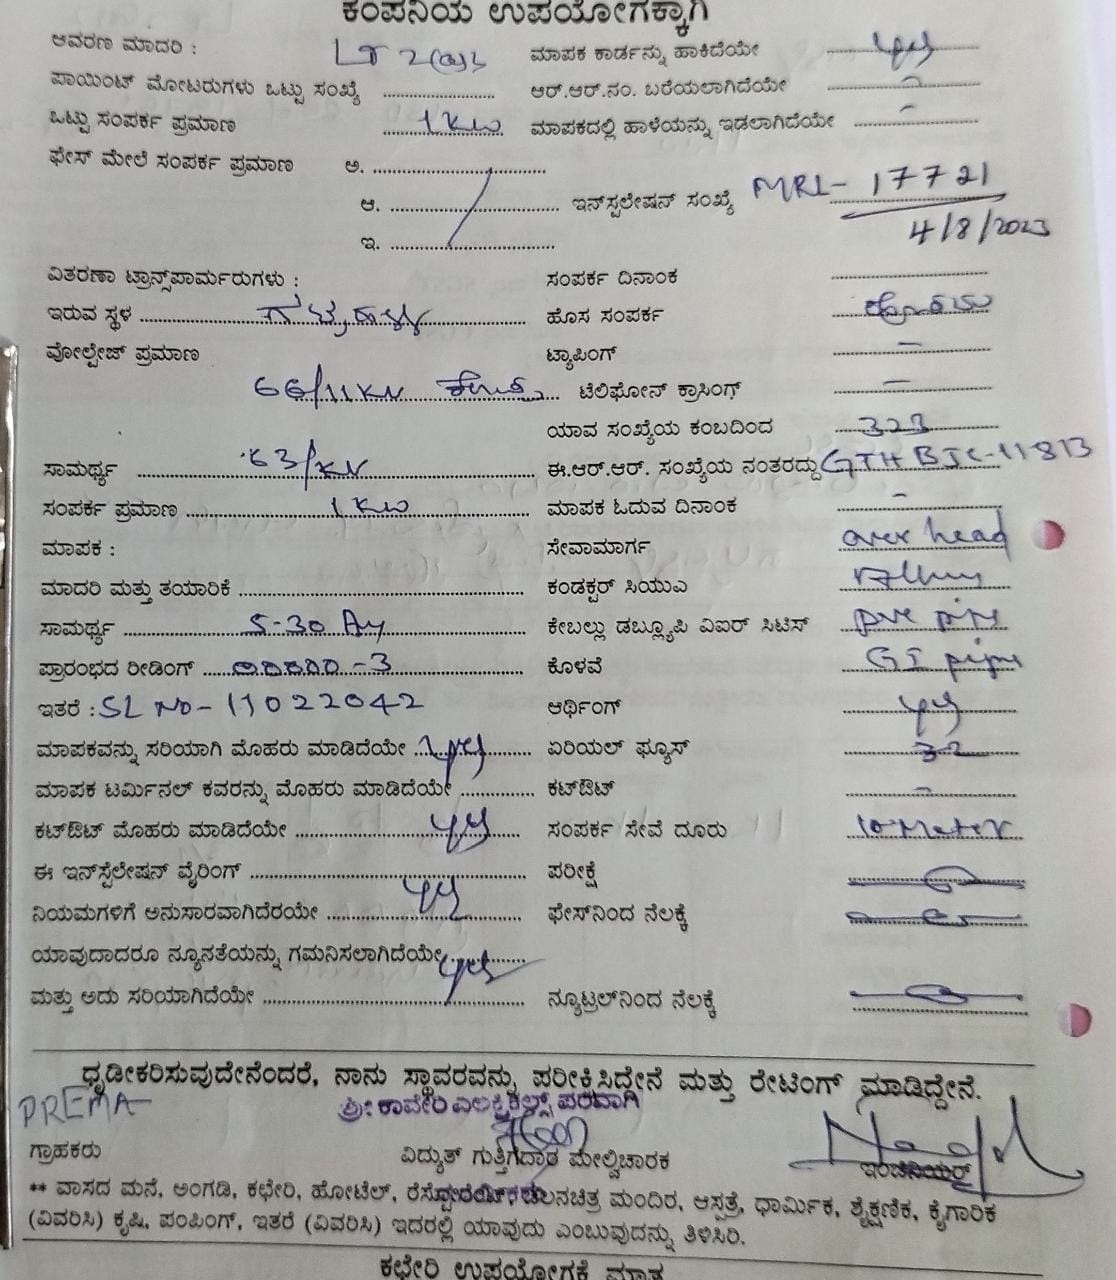 ಕಂಪನಿಯ ಉಪಯೋಗಕ್ಕಾಗಿ
ಆವರಣ ಮಾದರಿ : LT 2(a)2 ಮಾಪಕ ಕಾರ್ಡನ್ನು ಹಾಕಿದೆಯೇ yes
ಪಾಯಿಂಟ್ ಮೋಟರುಗಳು ಒಟ್ಟು ಸಂಖ್ಯೆ ಆರ್.ಆರ್.ನಂ. ಬರೆಯಲಾಗಿದೆಯೇ -
ಒಟ್ಟು ಸಂಪರ್ಕ ಪ್ರಮಾಣ 1 KW ಮಾಪಕದಲ್ಲಿ ಹಾಳೆಯನ್ನು ಇಡಲಾಗಿದೆಯೇ -
ಫೇಸ್ ಮೇಲೆ ಸಂಪರ್ಕ ಪ್ರಮಾಣ ಅ.
ಆ. ಇನ್‌ಸ್ಪಲೇಷನ್ ಸಂಖ್ಯೆ MRL- 17721
ಇ. 4/8/2023
ವಿತರಣಾ ಟ್ರಾನ್ಸ್‌ಪಾರ್ಮರುಗಳು : ಸಂಪರ್ಕ ದಿನಾಂಕ
ಇರುವ ಸ್ಥಳ ಹೊಸ ಸಂಪರ್ಕ
ವೋಲ್ಟೇಜ್ ಪ್ರಮಾಣ ಟ್ಯಾಪಿಂಗ್ -
66/11KV ಟೆಲಿಫೋನ್ ಕ್ರಾಸಿಂಗ್ -
ಯಾವ ಸಂಖ್ಯೆಯ ಕಂಬದಿಂದ 323
ಸಾಮರ್ಥ್ಯ 63/KV ಈ.ಆರ್.ಆರ್. ಸಂಖ್ಯೆಯ ನಂತರದ್ದು GTHBJC-11813
ಸಂಪರ್ಕ ಪ್ರಮಾಣ 1 KW ಮಾಪಕ ಓದುವ ದಿನಾಂಕ -
ಮಾಪಕ : ಸೇವಾಮಾರ್ಗ over head
ಮಾದರಿ ಮತ್ತು ತಯಾರಿಕೆ ಕಂಡಕ್ಟರ್ ಸಿಯುಎ
ಸಾಮರ್ಥ್ಯ 5-30 Am ಕೇಬಲ್ಲು ಡಬ್ಲ್ಯೂಪಿ ವಿಐಆರ್ ಸಿಟಿಸ್ pvc pipe
ಪ್ರಾರಂಭದ ರೀಡಿಂಗ್ 00000-3 ಕೊಳವೆ GI pipe
ಇತರೆ : SL NO- 11022042 ಆರ್ಥಿಂಗ್ yes
ಮಾಪಕವನ್ನು ಸರಿಯಾಗಿ ಮೊಹರು ಮಾಡಿದೆಯೇ yes ಏರಿಯಲ್ ಫ್ಯೂಸ್ 32
ಮಾಪಕ ಟರ್ಮಿನಲ್ ಕವರನ್ನು ಮೊಹರು ಮಾಡಿದೆಯೇ ಕಟ್‌ಔಟ್ -
ಕಟ್‌ಔಟ್ ಮೊಹರು ಮಾಡಿದೆಯೇ yes ಸಂಪರ್ಕ ಸೇವೆ ದೂರು 10 Meter
ಈ ಇನ್‌ಸ್ಪೆಲೇಷನ್ ವೈರಿಂಗ್ ಪರೀಕ್ಷೆ
ನಿಯಮಗಳಿಗೆ ಅನುಸಾರವಾಗಿದೆರಯೇ yes ಫೇಸ್‌ನಿಂದ ನೆಲಕ್ಕೆ
ಯಾವುದಾದರೂ ನ್ಯೂನತೆಯನ್ನು ಗಮನಿಸಲಾಗಿದೆಯೇ yes
ಮತ್ತು ಅದು ಸರಿಯಾಗಿದೆಯೇ ನ್ಯೂಟ್ರಲ್‌ನಿಂದ ನೆಲಕ್ಕೆ
ಧೃಡೀಕರಿಸುವುದೇನೆಂದರೆ, ನಾನು ಸ್ಥಾವರವನ್ನು ಪರೀಕ್ಷಿಸಿದ್ದೇನೆ ಮತ್ತು ರೇಟಿಂಗ್ ಮಾಡಿದ್ದೇನೆ.
PREMA ಶ್ರೀ ಕಾವೇರಿ ಎಲೆಕ್ಟ್ರಿಕಲ್ಸ್ ಪರವಾಗಿ
ಗ್ರಾಹಕರು ವಿದ್ಯುತ್ ಗುತ್ತಿಗೆದಾರ ಮೇಲ್ವಿಚಾರಕ ಇಂಜಿನಿಯರ್
** ವಾಸದ ಮನೆ, ಅಂಗಡಿ, ಕಛೇರಿ, ಹೋಟೆಲ್, ಚಲನಚಿತ್ರ ಮಂದಿರ, ಆಸ್ಪತ್ರೆ, ಧಾರ್ಮಿಕ, ಶೈಕ್ಷಣಿಕ, ಕೈಗಾರಿಕ
(ವಿವರಿಸಿ) ಕೃಷಿ, ಪಂಪಿಂಗ್, ಇತರೆ (ವಿವರಿಸಿ) ಇದರಲ್ಲಿ ಯಾವುದು ಎಂಬುವುದನ್ನು ತಿಳಿಸಿರಿ.
ಕಛೇರಿ ಉಪಯೋಗಕೆ ಮಾತ್ರ